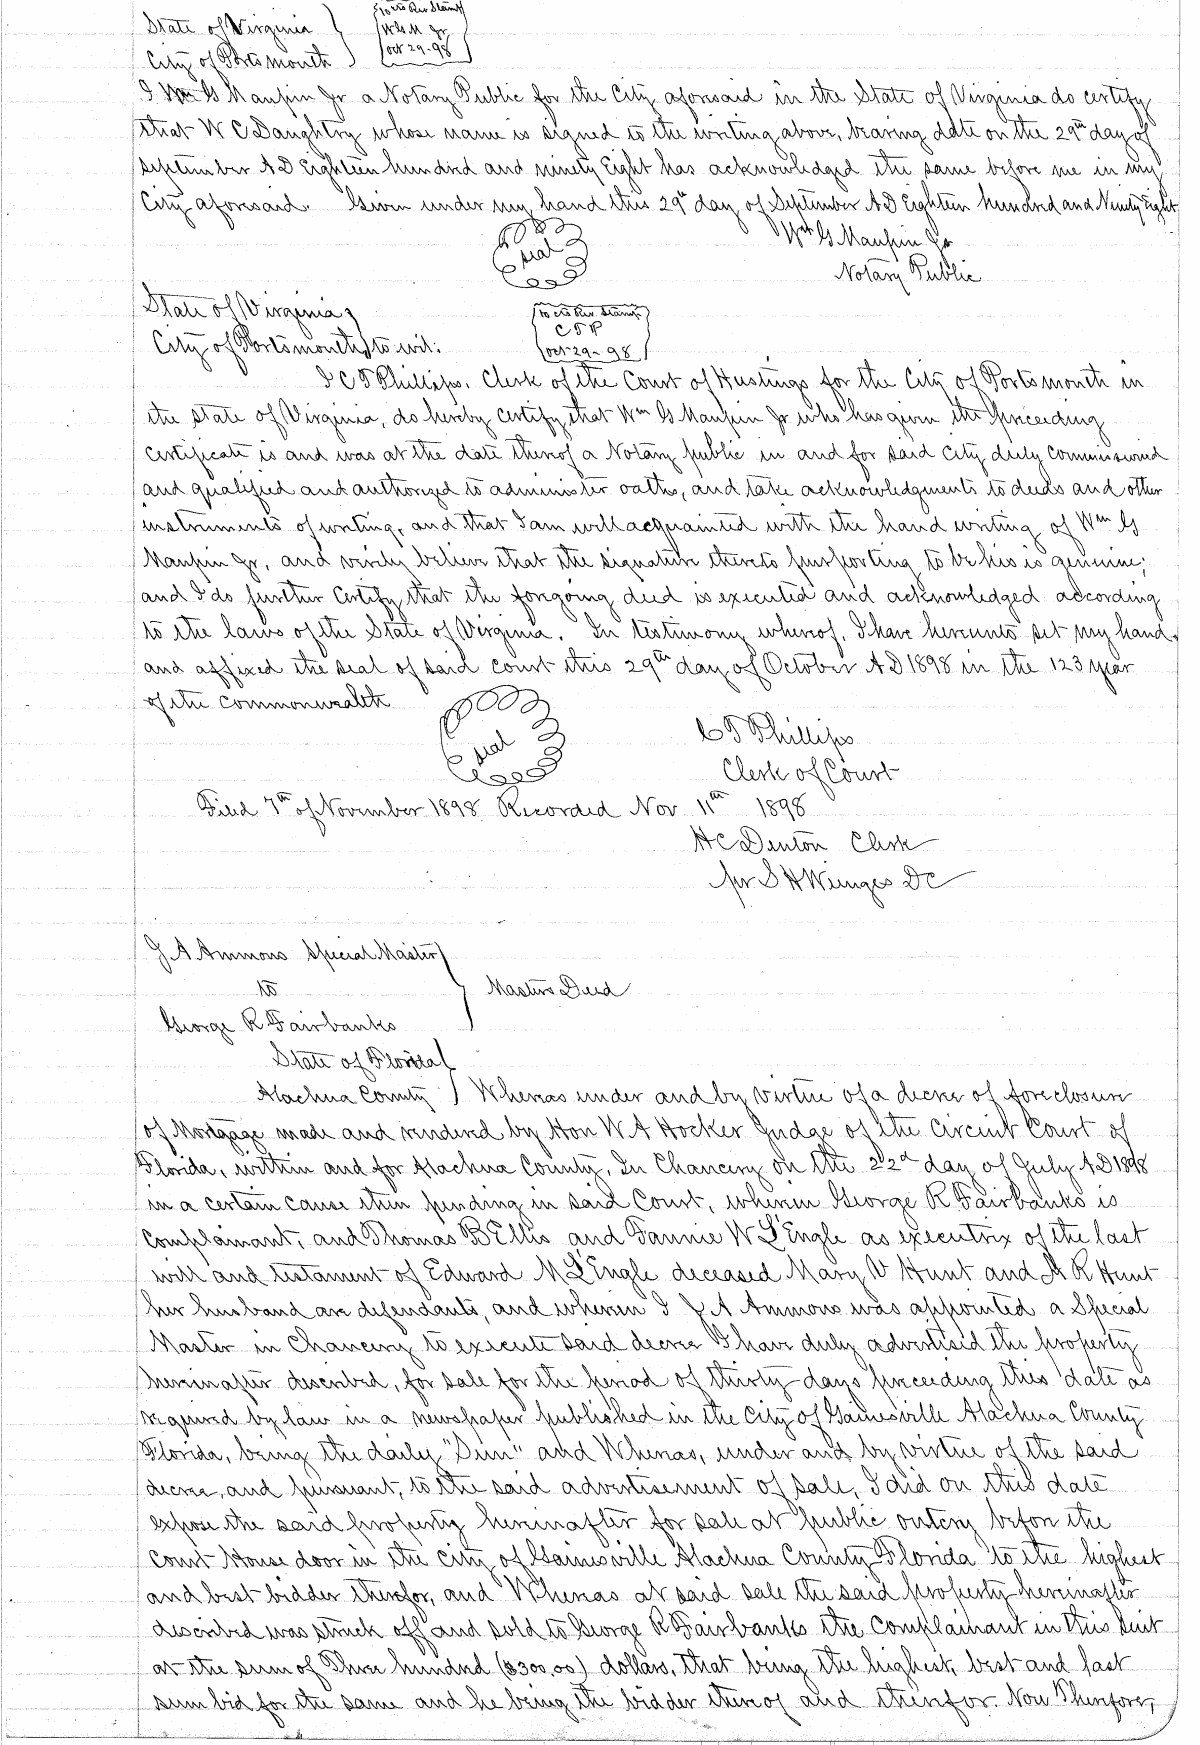 State of Virginia
City of Portsmouth
10 cts Rev Stamp
WGM Jr
Oct 29-98
I Wm G Maupin Jr a Notary Public for the City aforesaid in the State of Virginia do certify
that W C Daughtry whose name is signed to the writing above, bearing date on the 29th day of
September A D Eighteen hundred and ninety Eight has acknowledged the same before me in my
City aforesaid. Given under my hand this 29th day of September A D Eighteen hundred and Ninety Eight
Wm G Maupin Jr
seal
Notary Public
State of Virginia,
City of Portsmouth, to wit:
10 cts Rev. Stamp
C T P
Oct 29-98
I C T Phillips, Clerk of the Court of Hustings for the City of Portsmouth in
the State of Virginia, do hereby certify that Wm G Maupin Jr who has given the preceeding
certificate is and was at the date thereof a Notary public in and for said City duly commissioned
and qualified and authorized to administer oaths, and take acknowledgments to deeds and other
instruments of writing, and that I am well acquainted with the hand writing of Wm G
Maupin Jr, and verily believe that the signature thereto purporting to be his is genuine;
and I do further certify that the foregoing deed is executed and acknowledged according
to the laws of the State of Virginia. In testimony whereof, I have hereunto set my hand
and affixed the seal of said court this 29th day of October A D 1898 in the 123 year
of the commonwealth
seal
C T Phillips
Clerk of Court
Filed 7th of November 1898 Recorded Nov 11th 1898
H C Denton Clerk
pr S H Wienges DC
J A Ammons Special Master
to
Masters Deed
George R Fairbanks
State of Florida
Alachua County Whereas under and by virtue of a decree of foreclosure
of Mortgage made and rendered by Hon W A Hocker Judge of the Circuit Court of
Florida, within and for Alachua County, In Chancery on the 22d day of July A D 1898
in a certain cause then pending in said Court, wherein George R Fairbanks is
complainant, and Thomas B Ellis and Fannie W L'Engle as executrix of the last
will and testament of Edward M L'Engle deceased Mary V Hunt and A R Hunt
her husband are defendants, and wherein I J A Ammons was appointed a Special
Master in Chancery to execute said decree I have duly advertised the property
hereinafter described, for sale for the period of thirty days preceeding this date as
required by law in a newspaper published in the City of Gainesville Alachua County
Florida, being the daily "Sun" and Whereas, under and by virtue of the said
decree, and pursuant, to the said advertisement of sale, I did on this date
expose the said property hereinafter for sale at public outcry before the
Court House door in the city of Gainesville Alachua County Florida to the highest
and best bidder therefor, and Whereas at said sale the said property hereinafter
described was struck off and sold to George R Fairbanks the complainant in this suit
at the sum of Three hundred ($300.00) dollars, that being the highest, best and last
sum bid for the same and he being the bidder thereof and therefor. Now Therefore,